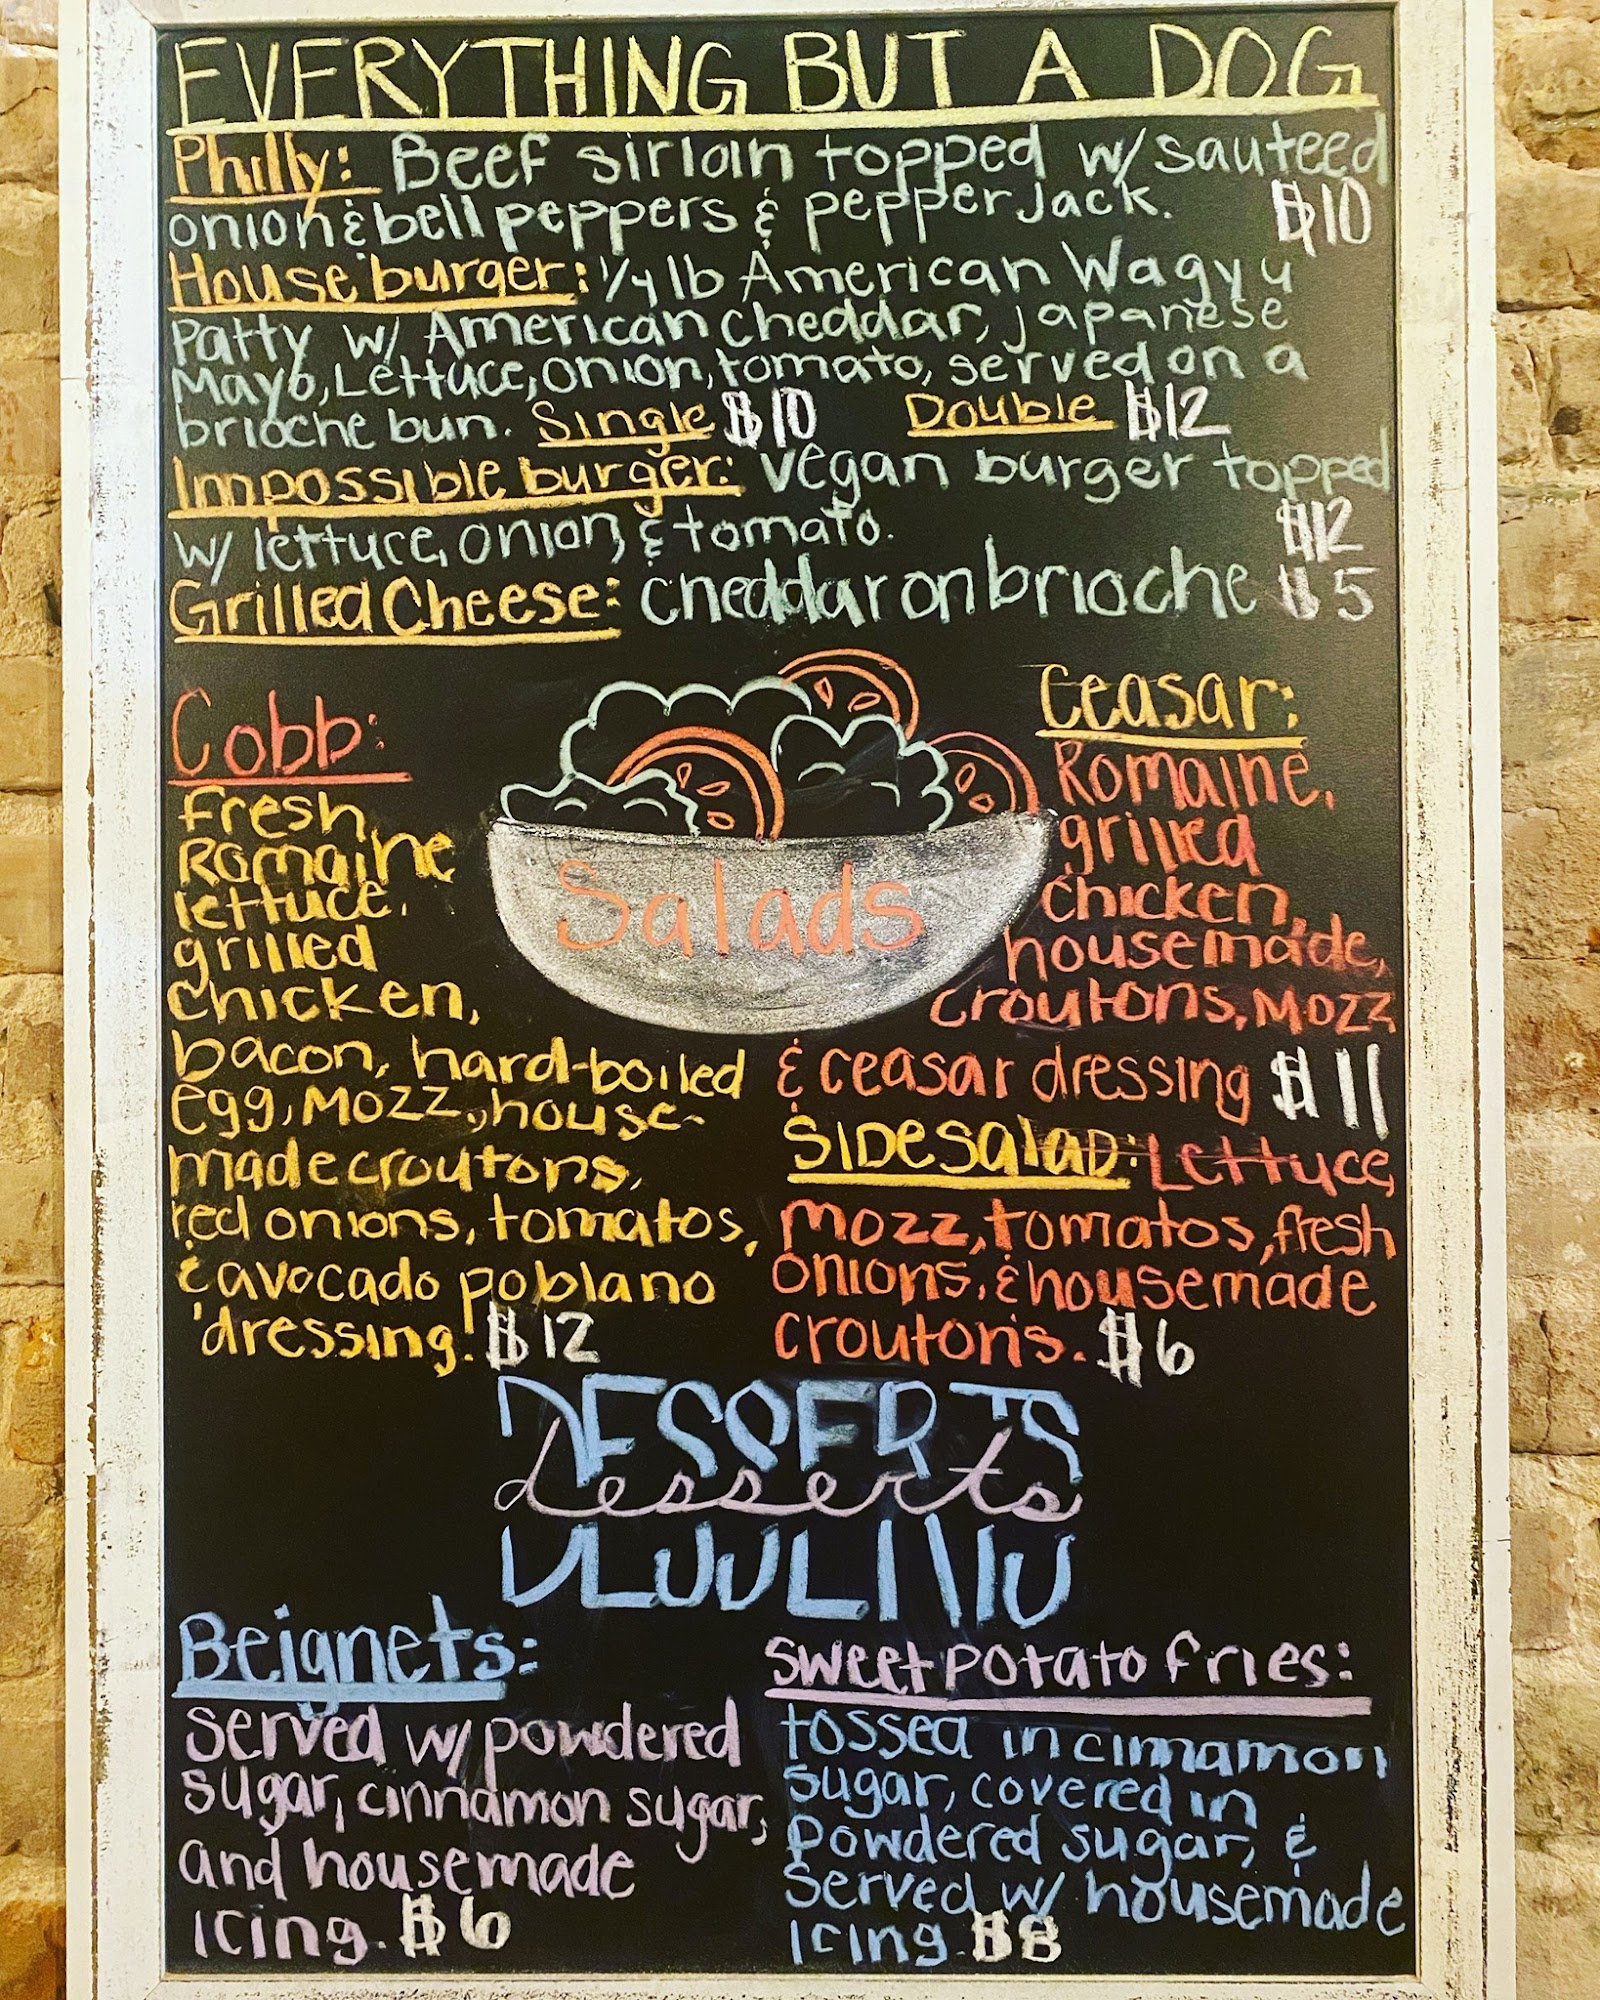 EVERYTHING BUT A DOG
Philly: Beef sirloin topped w/ sauteed
onion & bell peppers & pepper jack. $10
House burger: 1/4 lb American Wagyu
Patty w/ American cheddar, japanese
Mayo, Lettuce, onion, tomato, served on a
brioche bun. Single $10 Double $12
Impossible burger: vegan burger topped
w/ lettuce, onion, & tomato. $12
Grilled Cheese: cheddar on brioche $5
Cobb:
fresh
Romaine
lettuce,
grilled
chicken,
bacon, hard-boiled
egg, Mozz, house-
made croutons,
red onions, tomatos,
& avocado poblano
dressing! $12
Salads
Ceasar:
Romaine,
grilled
chicken,
housemade,
croutons, Mozz
& ceasar dressing $11
SIDE SALAD: Lettuce,
Mozz, tomatos, fresh
onions, & housemade
croutons. $6
DESSERTS
desserts
Beignets:
served w/ powdered
sugar, cinnamon sugar,
and housemade
icing. $6
sweet potato fries:
tossed in cinnamon
sugar, covered in
powdered sugar, &
served w/ housemade
icing. $8